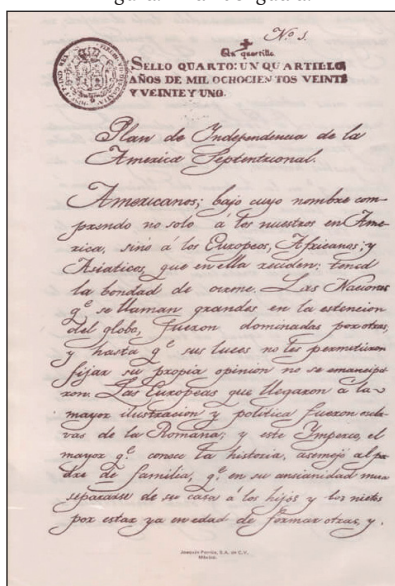 Nº 1.
Un quartillo
SELLO QUARTO: UN QUARTILLO,
AÑOS DE MIL OCHOCIENTOS VEINTE
Y VEINTE Y UNO.
Plan de Independencia de la
America Septentrional.
Americanos; bajo cuyo nombre com-
prendo no solo á los nuestros en Ame-
rica, sino á los Europeos, Africanos, y
Asiaticos, que en ella reciden: tened
la bondad de oirme. Las Naciones
q.e se llaman grandes en la estencion
del globo, fueron dominadas por otras,
y hasta q.e sus luces no les permitieron
fijar su propia opinion no se emancipa
ron. Las Europeas que llegaron á la
mayor ilustracion y politica fueron escla-
vas de la Romana; y este Imperio, el
mayor q.e conoce la historia, asemejó al pa-
dre de familia, q.e en su ancianidad mira
separarse de su casa á los hijos y los nietos
por estar ya en edad de formar otras, y
México.